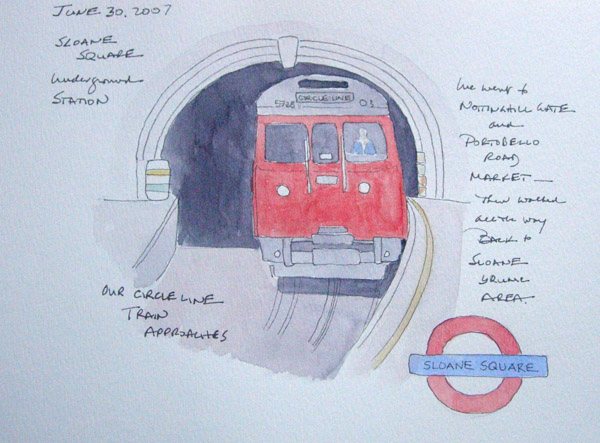 JUNE 30, 2007
SLOANE
SQUARE
Underground
STATION
CIRCLE LINE
5728
03
We went to
NOTINGHILL GATE
and
PORTOBELLO
ROAD
MARKET —
Then walked
all the way
BACK to
SLOANE
SQUARE
AREA.
OUR CIRCLE LINE
TRAIN
APPROACHES
SLOANE SQUARE